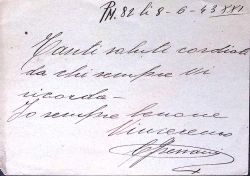 P.M. 82 li 8-6-43 XXI
Tanti saluti cordiali
da chi sempre vi
ricorda-
Io sempre benone
Vinceremo